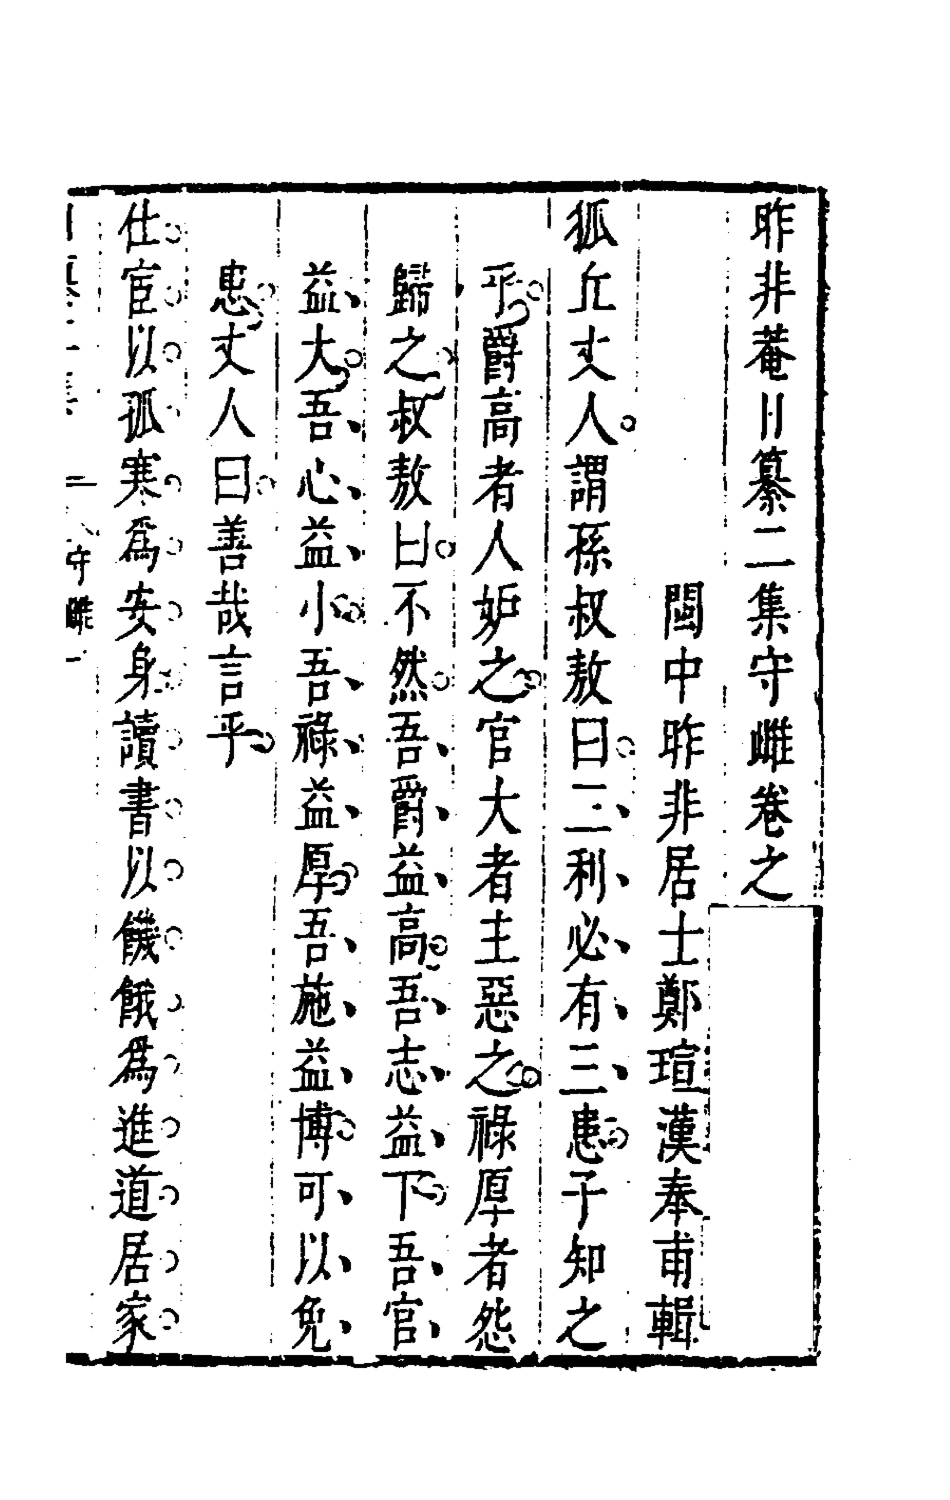 昨非菴日纂二集守雌卷之
閩中昨非居士鄭瑄漢奉甫輯
狐丘丈人謂孫叔敖曰二利必有三患子知之
乎爵高者人妒之官大者主惡之祿厚者怨
歸之叔敖曰不然吾爵益高吾志益下吾官
益大吾心益小吾祿益厚吾施益博可以免
患丈人曰善哉言乎
仕宦以孤寒為安身讀書以饑餓為進道居家
二 守雌 一